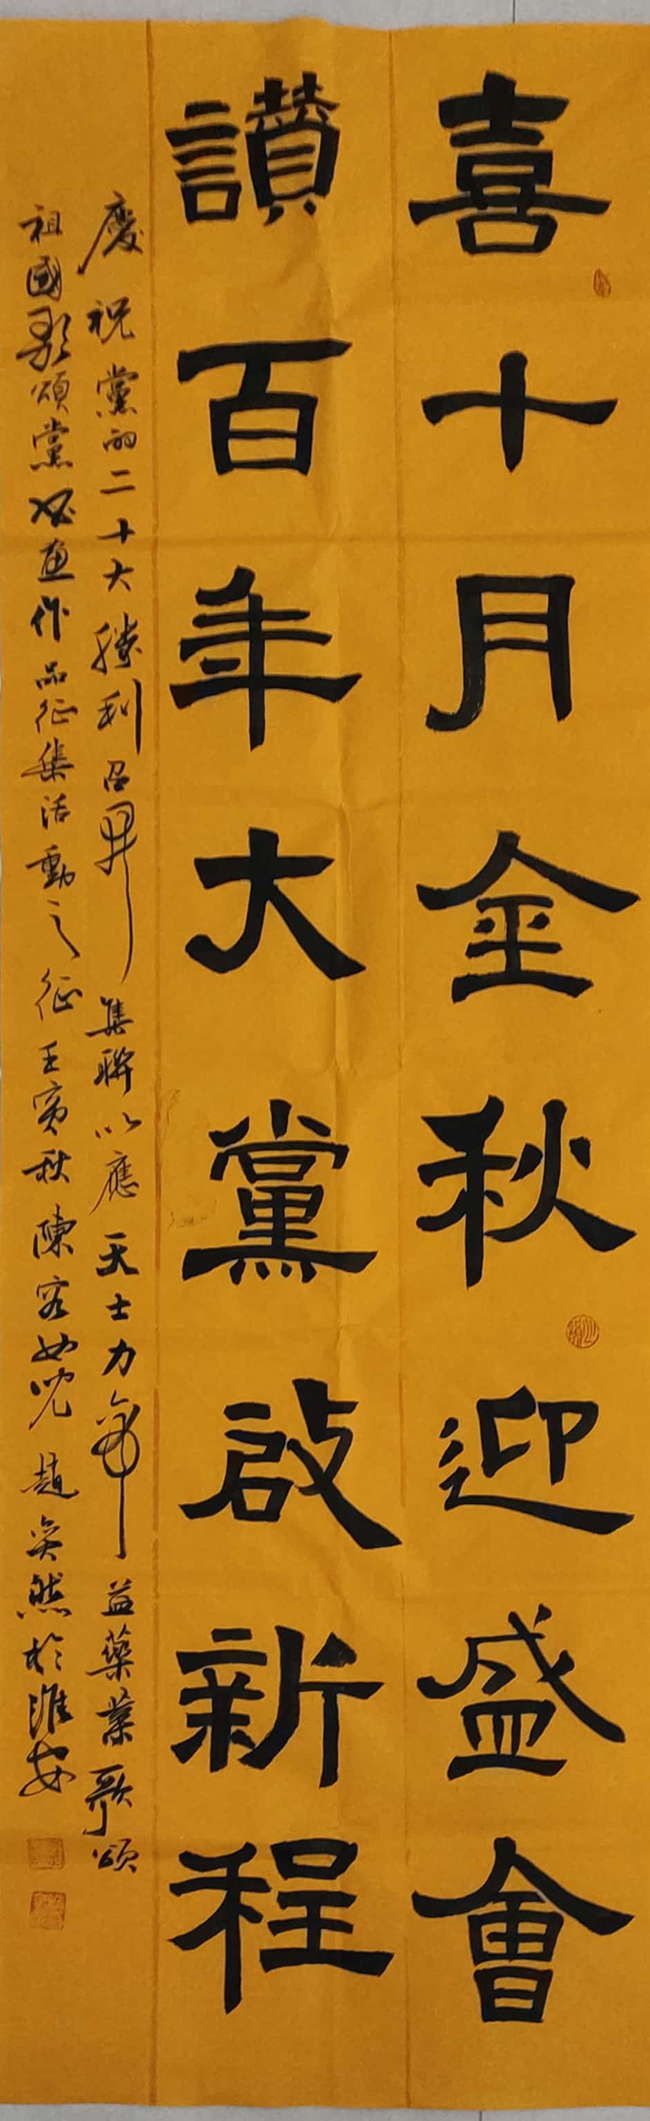 喜十月金秋迎盛會
讃百年大黨啟新程
慶祝黨的二十大勝利召開集聯以應天士力帝益藥業歌頌
祖國歌頌黨書畫作品征集活動之征壬寅秋陳容如兄趙奕然於淮安